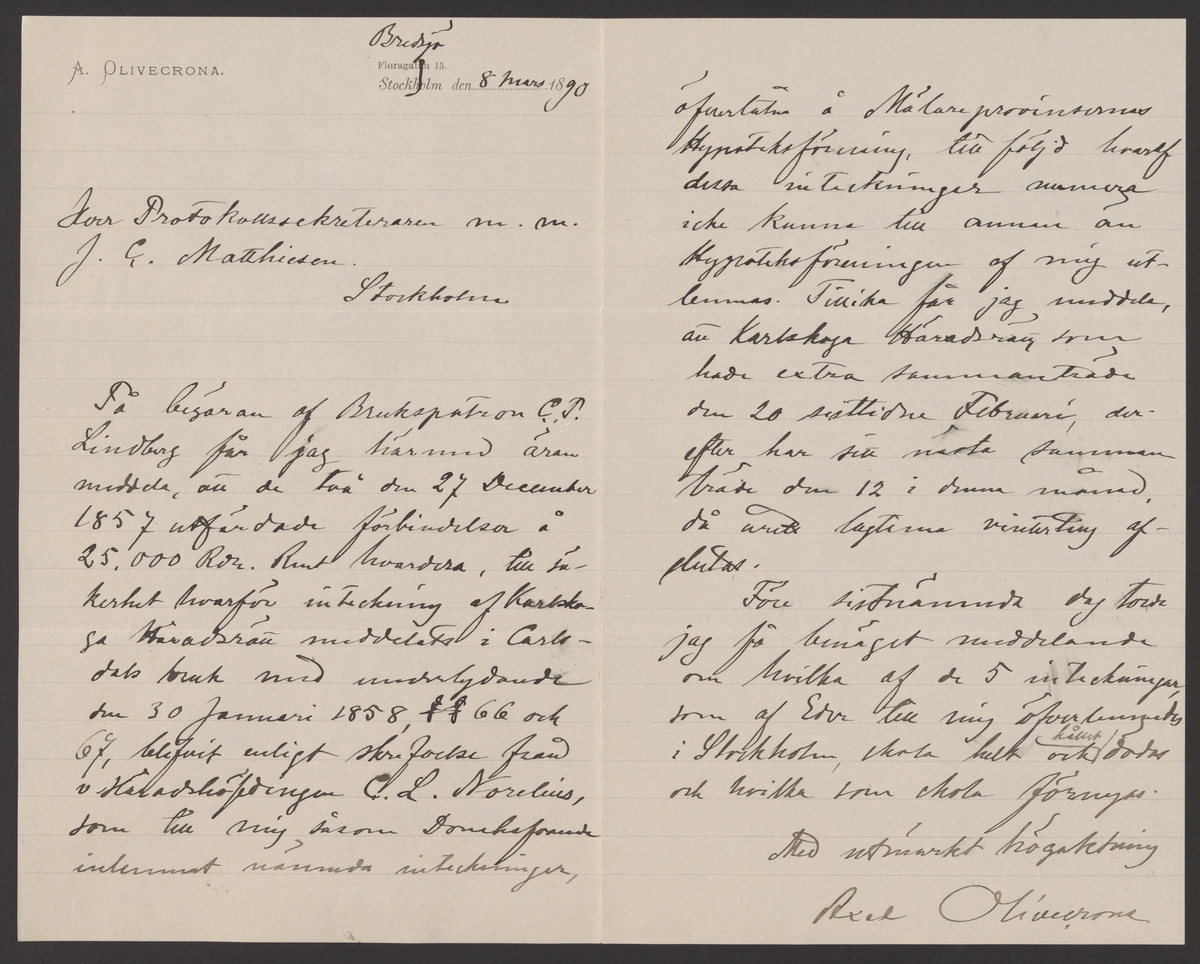 A. OLIVECRONA.
Bredsjö
Floragatan 15.
Stockholm den 8 Mars 1890
Herr Protokollssekreteraren m. m.
J. G. Matthiesen.
Stockholm
På begäran af Brukspatron C. P.
Lindberg får jag härmed äran
meddela, att de två den 27 December
1857 utfärdade förbindelser å
25,000 Rdr. Rmt hvardera, till sä-
kerhet hvarför inteckning af Karlsko-
ga Häradsrätt meddelats i Carls-
dals bruk med underlydande
den 30 Januari 1858, §§ 66 och
67, blifvit enligt skrifvelse från
v Häradshöfdingen C. L. Norelius,
som till mig såsom Domhafvande
inlemnat nämnda inteckningar,
öfverlåtna å Mälareprovinsernas
Hypoteksförening, till följd hvaraf
dessa inteckningar numera
icke kunna till annan än
Hypoteksföreningen af mig ut-
lemnas. Tillika får jag meddela,
att Karlskoga Häradsrätt som
hade extra sammanträde
den 20 sisttidne Februari, der-
efter har sitt nästa samman
träde den 12 i denna månad,
då årets lagtima vinterting af-
slutas.
Före sistnämnda dag torde
jag få benäget meddelande
om hvilka af de 5 inteckningar,
som af Eder till mig öfverlemnades
i Stockholm, skola helt och hållet dödas
och hvilka som skola förnyas.
Med utmärkt högaktning
Axel Olivecrona